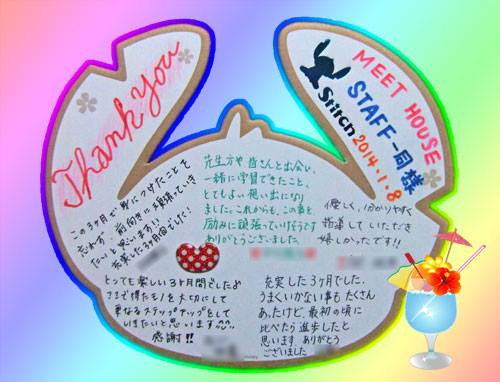 Thank you
MEET HOUSE
STAFF一同様
Stitch 2014.1.8
この3ヶ月で身につけたことを
忘れず 前向きに頑張っていき
たいと思います!!
充実した3ヶ月間でした!
先生方や皆さんと出会い、
一緒に学習できたこと、
とてもよい思い出になり
ました。これからも、この事を
励みに頑張っていけそうです
ありがとうございました。
優しく、分かりやすく
指導して いただき
嬉しかったです!!
とっても楽しい3ヶ月間でした♪
ここで得たモノを大切にして
更なるステップアップをして
いきたいと思います
感謝!!
充実した3ヶ月でした。
うまくいかない事もたくさん
あったけど、最初の頃に
比べたら進歩したと
思います。ありがとう
ございました